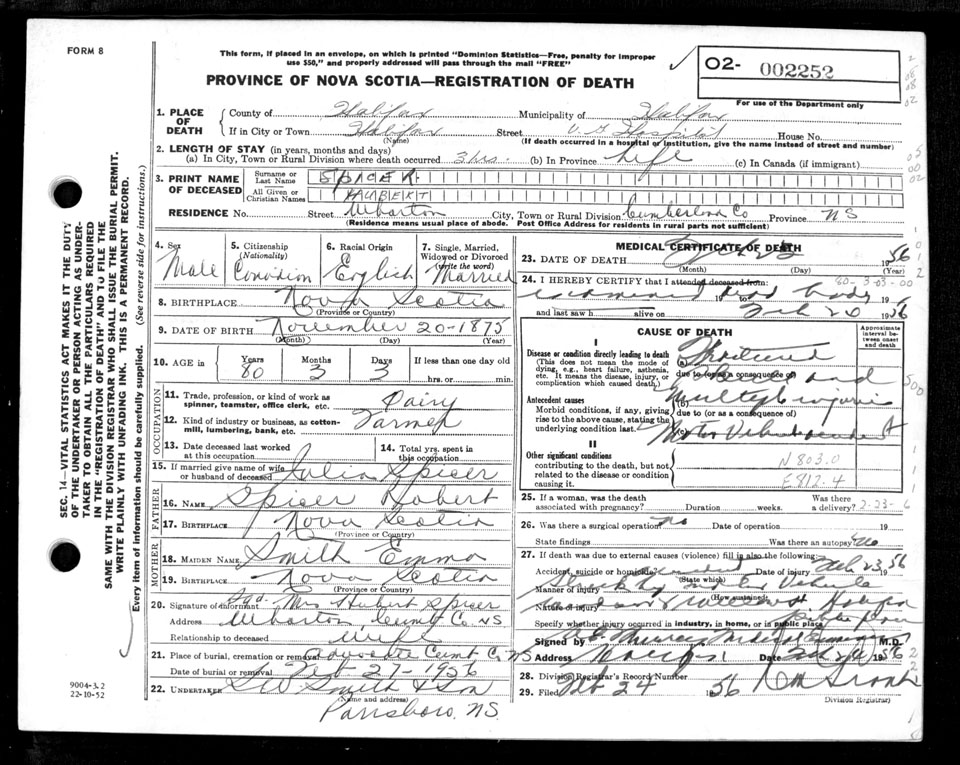 FORM 8
This form, if placed in an envelope, on which is printed "Dominion Statistics—Free, penalty for improper
use $50," and properly addressed will pass through the mail "FREE"
PROVINCE OF NOVA SCOTIA—REGISTRATION OF DEATH
O2- 002252
For use of the Department only
1. PLACE OF DEATH
County of Halifax Municipality of Halifax
(Name)
If in City or Town Halifax Street V.G. Hospital House No.
(If death occurred in a hospital or institution, give the name instead of street and number)
2. LENGTH OF STAY (in years, months and days)
(a) In City, Town or Rural Division where death occurred 3 hrs. (b) In Province Life (c) In Canada (if immigrant)
3. PRINT NAME OF DECEASED
Surname or Last Name SPICER
All Given or Christian Names
RESIDENCE No. Street Wharton City, Town or Rural Division Cumberland Co Province NS
(Residence means usual place of abode. Post Office Address for residents in rural parts not sufficient)
4. Sex Male
5. Citizenship (Nationality) Canadian
6. Racial Origin English
7. Single, Married, Widowed or Divorced (write the word) Married
8. BIRTHPLACE Nova Scotia
(Province or Country)
9. DATE OF BIRTH November 20-1875
(Month) (Day) (Year)
10. AGE in Years 80 Months 3 Days 3 If less than one day old
hrs. or min.
OCCUPATION
11. Trade, profession, or kind of work as spinner, teamster, office clerk, etc. Dairy
12. Kind of industry or business, as cotton-mill, lumbering, bank, etc. Farmer
13. Date deceased last worked at this occupation
14. Total yrs. spent in this occupation
15. If married give name of wife or husband of deceased Julia Spicer
FATHER
16. NAME Spicer Robert
17. BIRTHPLACE Nova Scotia
(Province or Country)
MOTHER
18. MAIDEN NAME Smith Emma
19. BIRTHPLACE Nova Scotia
(Province or Country)
20. Signature of informant Sgd. Mrs Hubert Spicer
Address Wharton, Cumb Co. NS
Relationship to deceased wife
21. Place of burial, cremation or removal Advocate Cumb Co NS
Date of burial or removal Feb 27-1956
22. UNDERTAKER Smith & Son
(Name and address)
Parrsboro, N.S.
MEDICAL CERTIFICATE OF DEATH
23. DATE OF DEATH 1956
(Month) (Day) (Year)
24. I HEREBY CERTIFY that I attended deceased from:
80-3-03-00
examined dead body
19 to 19
and last saw h alive on Feb 1956
CAUSE OF DEATH
Approximate interval between onset and death
I
Disease or condition directly leading to death
(This does not mean the mode of dying, e.g., heart failure, asthenia, etc. It means the disease, injury, or complication which caused death.)
(a) Fractured
due to (or as a consequence of)
and
Antecedent causes
Morbid conditions, if any, giving rise to the above cause, stating the underlying condition last.
(b) Multiple injuries
due to (or as a consequence of)
Motor Vehicle accident
II
Other significant conditions
contributing to the death, but not related to the disease or condition causing it.
N 803.0
E812.4
25. If a woman, was the death associated with pregnancy? Duration weeks. Was there a delivery?
2-23-6
26. Was there a surgical operation no Date of operation 19
State findings Was there an autopsy no
27. If death was due to external causes (violence) fill in also the following:
Accident, suicide or homicide? accident Date of injury Feb 23 1956
(State which)
Manner of injury Struck by motor Vehicle
(How sustained)
Nature of injury
Specify whether injury occurred in industry, in home, or in public place
Signed by Medical Examiner M.D.
Address Date Feb 1956
28. Division Registrar's Record Number
29. Filed Feb 24 1956
Division Registrar)
SEC. 14—VITAL STATISTICS ACT MAKES IT THE DUTY
OF THE UNDERTAKER OR PERSON ACTING AS UNDER-
TAKER TO OBTAIN ALL THE PARTICULARS REQUIRED
IN THE "REGISTRATION OF DEATH" AND TO FILE THE
SAME WITH THE DIVISION REGISTRAR WHO SHALL ISSUE THE BURIAL PERMIT.
WRITE PLAINLY WITH UNFADING INK. THIS IS A PERMANENT RECORD.
Every item of information should be carefully supplied. (See reverse side for instructions.)
9004-3.2
22-10-52